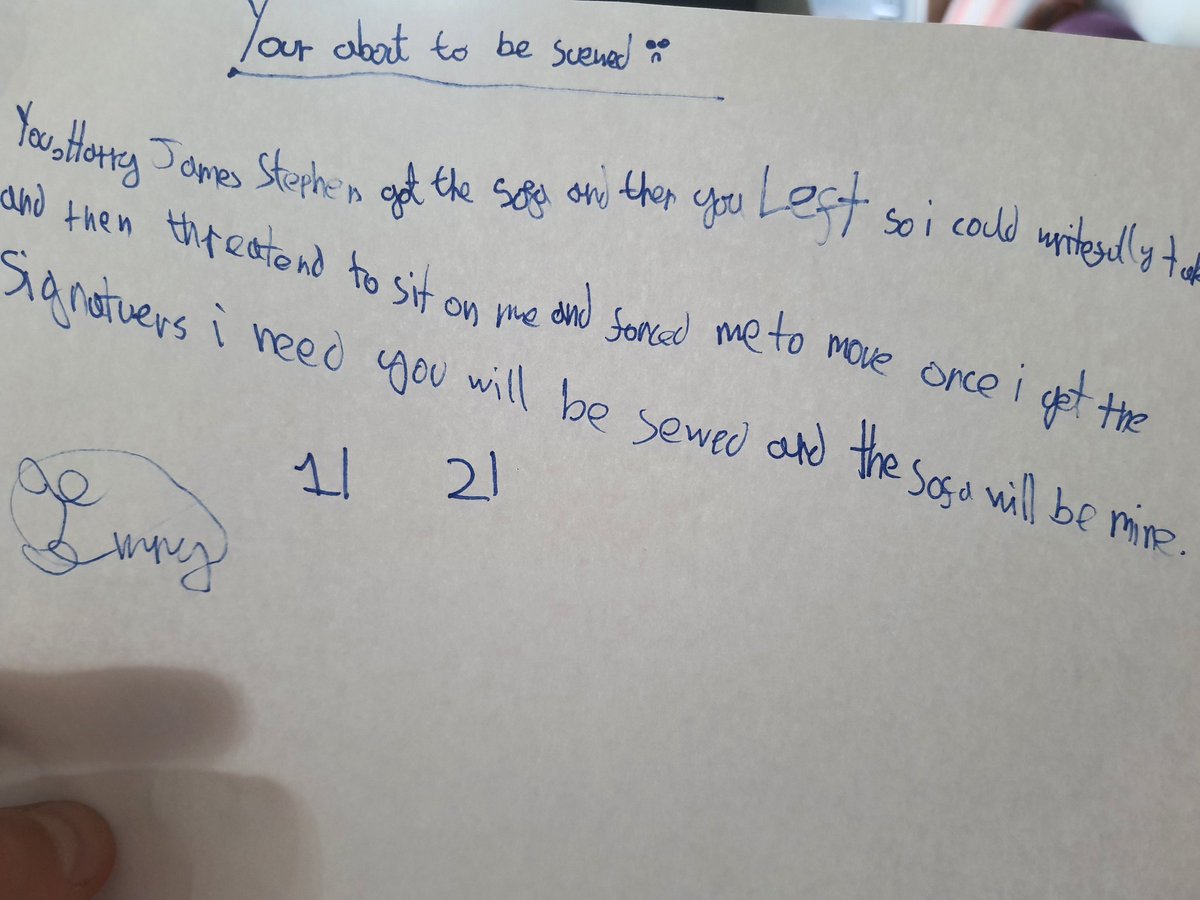 Your about to be suewed
You, Harry James Stephen got the sofa and then you Left so i could writefully take
and then threatend to sit on me and forced me to move once i get the
Signatuers i need you will be sewed and the sofa will be mine.
1| 2|